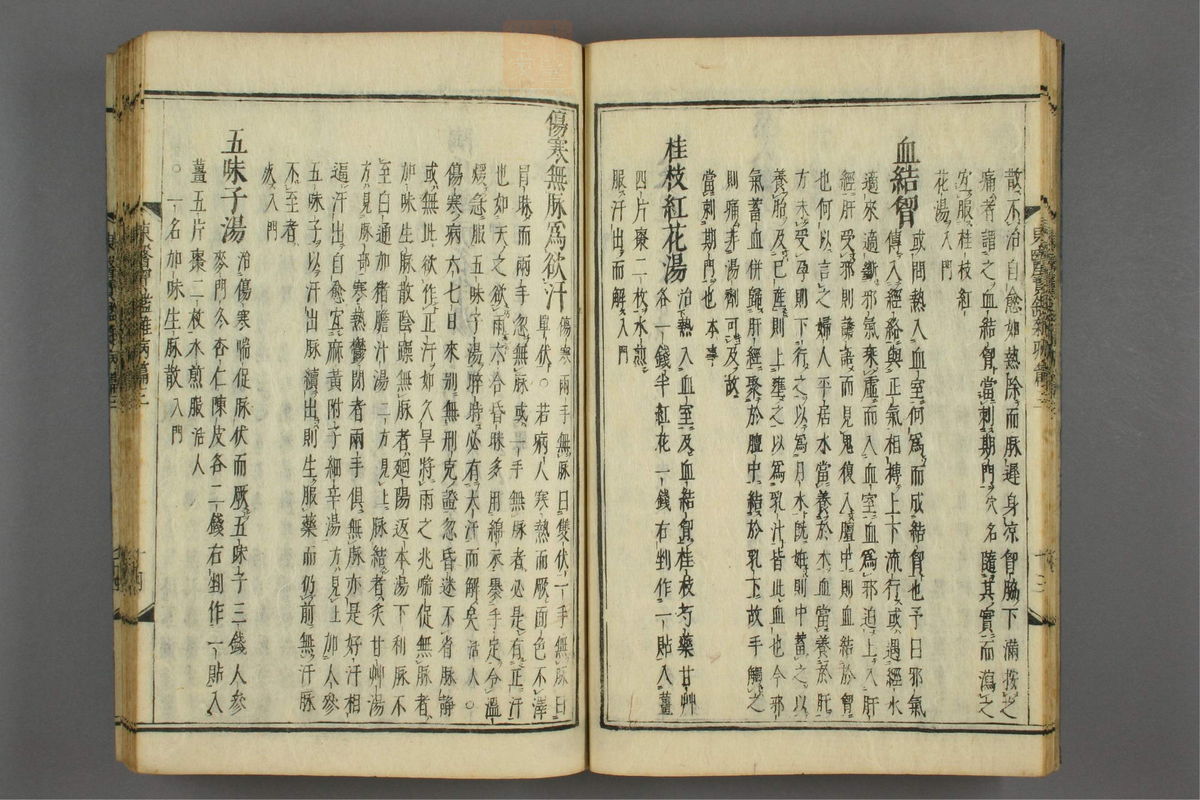 散不治自愈如熱除而脉遲身凉胷脇下滿按之
痛者謂之血結胷當刺期門穴名隨其實而瀉之
宜服桂枝紅
花湯入門
血結胷
或問熱入血室何爲而成結胷也予曰邪氣
傳入經絡與正氣相搏上下流行或遇經水
適來適斷邪氣乘虛而入血室血爲邪迫上入肝
經肝受邪則譫語而見鬼復入膻中則血結於胷
也何以言之婦人平居水當養於木血當養於肝
方未受孕則下行之以爲月水旣姙則中蓄之以
養胎及已産則上壅之以爲乳汁皆此血也今邪
氣蓄血併歸肝經聚於膻中結於乳下故手觸之
則痛非湯劑可及故
當刺期門也本事
桂枝紅花湯
治熱入血室及血結胷桂枝芍藥甘艸
各一錢半紅花一錢右剉作一貼入薑
四片棗二枚水煎
服汗出而解入門
傷寒無脉爲欲汗
傷寒兩手無脉曰雙伏一手無脉曰
單伏○若病人寒熱而厥面色不澤
冒昧而兩手忽無脉或一手無脉者必是有正汗
也如天之欲雨六合昏昧多用綿衣裹手足令溫
煖急服五味子湯移時必有大汗而解矣活人○
傷寒病六七日來別無刑克證忽昏迷不省脉靜
或無此欲作正汗如久旱將雨之兆喘促無脉者
加味生脉散陰躁無脉者廻陽返本湯下利脉不
至白通加猪膽汁湯二方見上脉結者炙甘艸湯
方見脉部寒熱鬱閉者兩手俱無脉亦是好汗相
逼汗出自愈宜麻黃附子細辛湯方見上加人參
五味子以汗出脉續出則生服藥而仍前無汗脉
不至者
死入門
五味子湯
治傷寒喘促脉伏而厥五味子三錢人參
麥門冬杏仁陳皮各二錢右剉作一貼入
薑五片棗二枚水煎服活人
○一名加味生脉散入門
東醫寶鑑雜病篇二